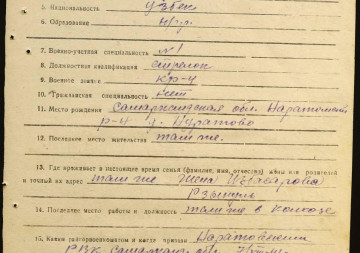 5. Национальность узбек
6. Образование н/гр.
7. Военно-учетная специальность №1
8. Должностная квалификация стрелок
9. Военное звание кр-ц
10. Гражданская специальность нет
11. Место рождения Самаркандская обл.
р-н
12. Последнее место жительства там же.
13. Где проживает в настоящее время семья (фамилия, имя, отчество) жены или родителей
и точный их адрес там же жена
14. Последнее место работы и должность там же в колхозе
15. Каким райгорвоенкоматом и когда призван
РВК